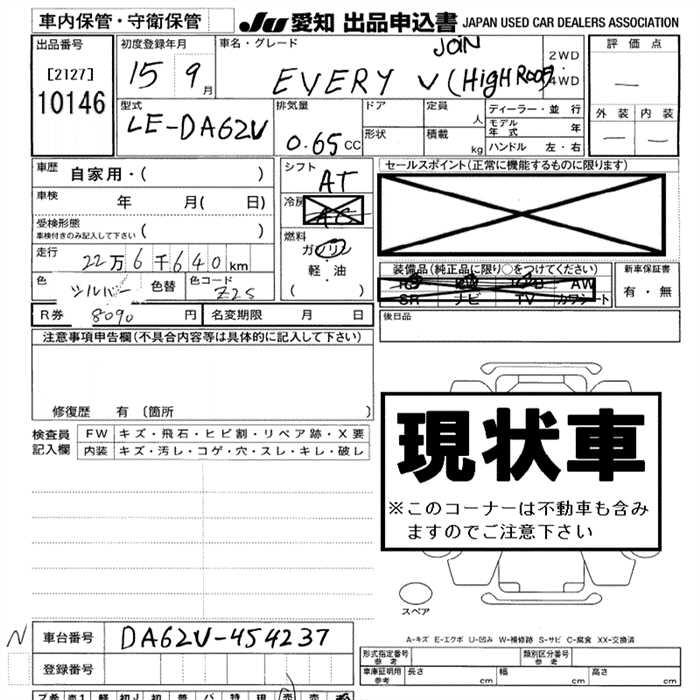 車内保管・守衛保管
JU 愛知 出品申込書 JAPAN USED CAR DEALERS ASSOCIATION
出品番号
[2127]
10146
初度登録年月
15 9月
車名・グレード
EVERY V (High ROOF)
JOIN
2WD
・
4WD
評価点
—
外装 内装
— —
型式
LE-DA62V
排気量
0.65 CC
ドア
形状
定員 人
積載 kg
ディーラー・並行
モデル年式 年
ハンドル 左・右
車歴 自家用・( )
車検 年 月( 日)
受検形態
車検付きのみ記入して下さい ( )
走行 22万6千640km
色 シルバー 色替 色コード Z2S
シフト AT
冷房 AC
燃料
ガソリン
・
軽・油
( )
セールスポイント(正常に機能するものに限ります)
装備品(純正品に限り○をつけてください)
AW
SR ナビ TV カワシート
新車保証書
有・無
R券 8090 円 名変期限 月 日
後日品
注意事項申告欄(不具合内容等は具体的に記入して下さい)
修復歴 有 〔箇所 〕
検査員記入欄
FW キズ・飛石・ヒビ割・リペア跡・X要
内装 キズ・汚レ・コゲ・穴・スレ・キレ・破レ
現状車
※このコーナーは不動車も含み
ますのでご注意下さい
スペア
A-キズ E-エクボ U-凹み W-補修跡 S-サビ C-腐食 XX-交換済
N 車台番号 DA62V-454237
登録番号
形式指定番号
参考
類別区分番号
参考
車庫証明用
参考
長さ cm 幅 cm 高さ cm